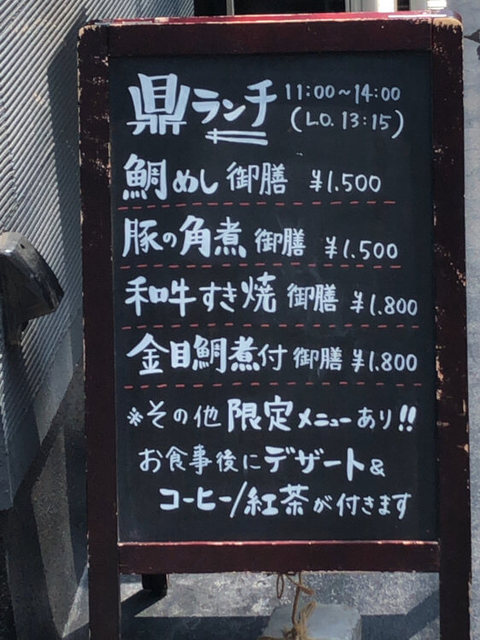 鼎ランチ 11:00~14:00
(L.O. 13:15)
鯛めし御膳 ¥1.500
豚の角煮御膳 ¥1.500
和牛すき焼御膳 ¥1.800
金目鯛煮付御膳 ¥1.800
※その他限定メニューあり!!
お食事後にデザート&
コーヒー/紅茶が付きます